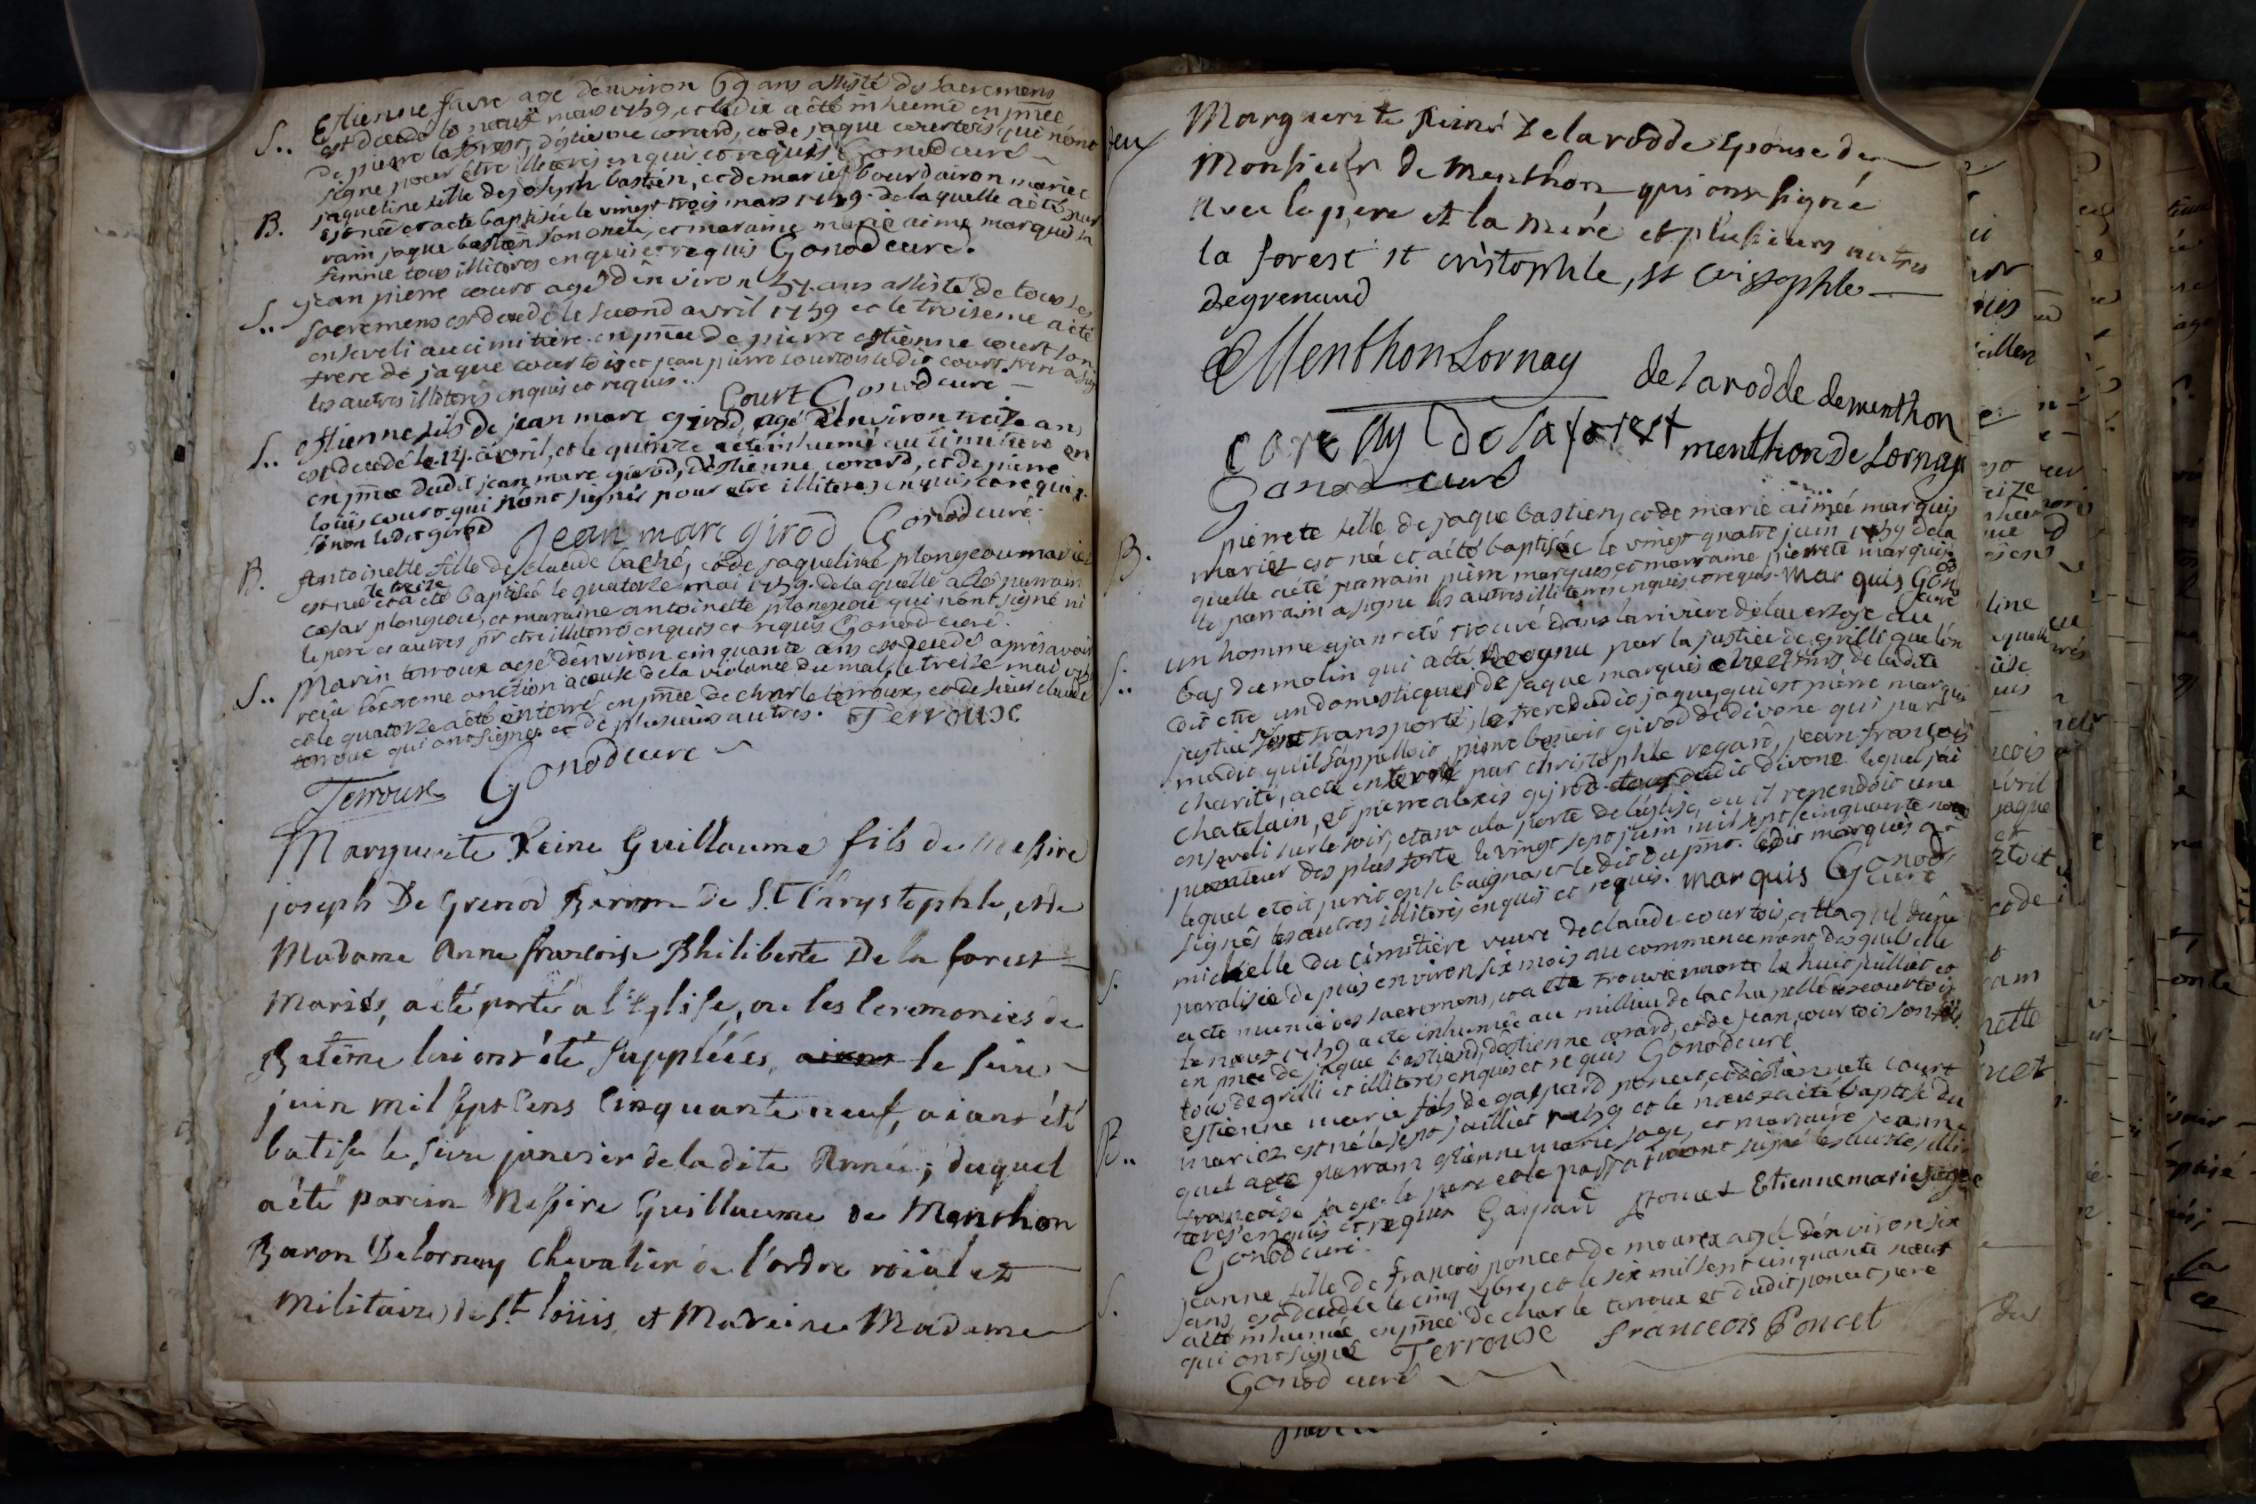 S.. Estienne favre age denviron 69 ans assisté des sacremens
est decedé le neuf mars 1759, et le dix a été inhumé en pñce
de pierre laforest, déstienne conard, et de jaque courtois qui nónt
signé pour étre illiteres enquis et requis Gonod curé
B. jaqueline fille de joseph bastien, et de marie bourdairon mariez
est née et a eté baptisée le vingt trois mars 1759. de laquelle a été par
rain jaque bastien son oncle, et maraine marie aimé marquis sa
femme tous illiteres enquis et requis Gonod curé.
S.. jean pierre court agé dénviron 57. ans assisté de tous les
sacremens est decedé le second avril 1759 et le troiseme a été
enseveli au cimitiere en pñce de pierre estienne court son
frere de jaque courtois et jean pierre courtois ledit court frere a signé
les autres illiteres enquis et requis.
Court Gonod curé
S.. estienne fils de jean marc girod, agé dénviron treize ans
est decedé le 14. avril, et le quinze a eté inhumé au cimitiere
en pñce dudit jean marc girod, déstienne conard, et de pierre
loüis court qui nónt signés pour etre illiteres enquis et requis.
sinon ledit girod Jean marc girod Gonod curé.
B. Antoinette fille de claude baché, et de jaqueline plongeou mariez
est née le treize et a eté baptisée le quatorze mai 1759. de la quelle a eté parrain
cæsar plongeou, et maraine antoinette plongeou qui nónt signé ni
le pere et autres pr etre illiteres enquis et requis Gonod curé.
S.. Marin terroux agé dénviron cinquante ans est decedé apres avoir
reçu léxtreme onction a cause de la violance du mal, le treize mai 1759
et le quatorze a eté enterré en pñce de charle terroux, et de sieur claude
terroux qui ont signez et de plusieurs autres. Terrouxe
Terroux Gonod curé
Marguerite Reine Guillaume fils de Messire
joseph De Grenod Baron De St Chrystophle, et de
Madame Anne francoise Philiberte De la forest
Mariés, a été porté a l'Eglise, ou les Ceremonies de
Batême lui ont été suppléées, aiant le seize
juin mil sept Cens Cinquante neuf, aiant été
batisé le seize janvier de la dite Année; duquel
a été parein Messire Guillaume de Menthon
Baron De lornay Chevalier de l'ordre roial et
Militaire de St loüis, et Mareine Madame
Marguerite Reine De la rodde Epouse de
Monsieur de Menthon, qui ont signé
avec le pere et la mere et plusieurs autres
la forest st cristophle, st cristophle
degrenaud
Menthon Lornay
de la rodde de menthon
de la forest menthon de Lornay
Gonod curé
B. pierrete fille de jaque bastien, et de marie aimée marquis
mariés est née et a été baptisée le vingt quatre juin 1759 de la
quelle a été parrain pierre marquis, et marraine pierrete marquis
le parrain a signé les autres illiteres enquis et requis. Mar quis Gonod
curé
S.. un homme ajant eté trouvé dans la riviere de la versoye au
bas du molin qui a été recognu par la justice de grilli que lón
dit etre un domesticque de jaque marquis et les gens de ladite
justice sy sont transporté, le frere dudit jaque, qui est pierre marquis
ma dit qu'il s'appelloit pierre benoit girod de divone qui par
charité, a eté enterré par christophle regard, jean françois
chatelain, et pierre alexis girod tous dudit divone lequel j'ai
enseveli sur le soir, etant a la porte de léglise, ou il rependoit une
puanteur des plus forte le vingt sept juin mil sept cinquante neuf
lequel etoit perit en se baignant le dit du pñt. ledit marquis a
signés les autres illiteres enquis et requis. marquis Gonod
curé
S. michelle du cimitiere veuve de claude courtois, attaqué dune
paralisie depuis environ six mois au commencement desquels elle
a eté munie des sacremens, et a eté trouvée morte le huit juilliet et
le neuf 1759 a eté inhumée au millieu de la chapelle es courtois
en pñce de jaque bastiand, déstienne conard, et de jean courtois son fils
tous de grilli et illiteres enquis et requis Gonod curé
B.. Estienne marie fils de gaspard poncet, et déstiennete court
mariez est né le sept juilliet 1759 et le neuf a eté baptisé du
quel a eté parrain estienne marie sage, et marraine jeanne
françoise sage le pere et le parrain ont signé les autres illi
teres enquis et requis Gaspard Poncet Etienne marie Sage
Gonod curé.
S. jeanne fille de françois poncet de mourex agé dénviron six
ans, est decedée le cinq 9bre, et le six mil sept cinquante neuf
a eté inhumée en pñce de charle terroux et dudit poncet pere
qui ont signé Terrouxe franceois Poncet
Gonod curé